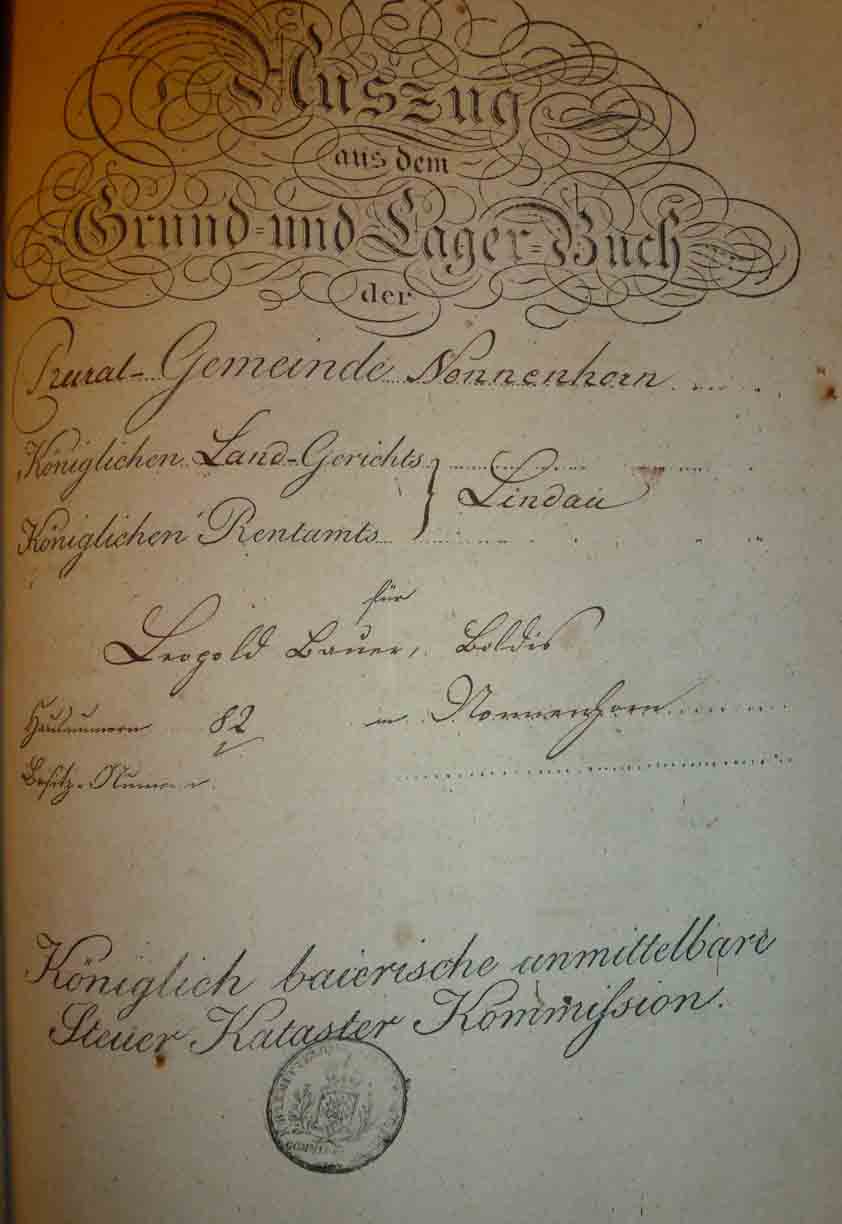 Auszug
aus dem
Grund= und Lager=Buch
der
Rural-Gemeinde Nonnenhorn
Königlichen Land-Gerichts } Lindau
Königlichen Rentamts
für
Leopold Bauer, Boldis
Hausnumern 82 in Nonnenhorn
Besitz-Numer
Königlich baierische unmittelbare
Steuer Kataster Kommiſsion.